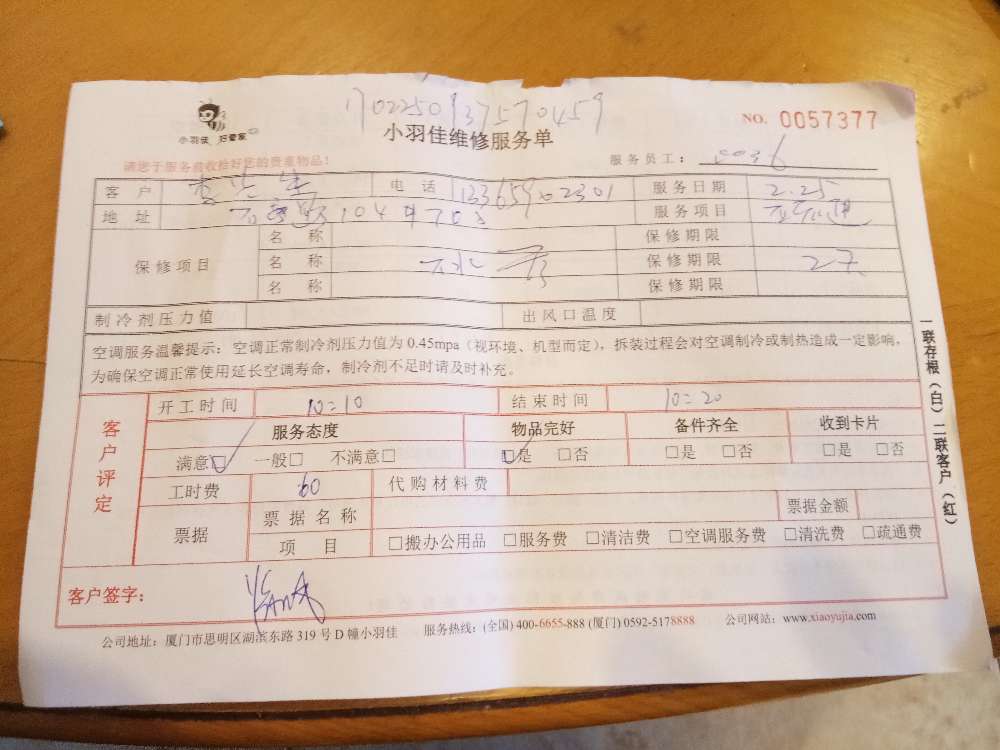 17022509375704 59
小羽佳 好管家
小羽佳维修服务单
NO. 0057377
请您于服务前收检好您的贵重物品！
服务员工： 0036
客 户 李先生 电 话 13365902301 服务日期 2.25
地 址 104 服务项目
保修项目 名 称 保修期限
名 称 保修期限 2天
名 称 保修期限
制冷剂压力值 出风口温度
空调服务温馨提示：空调正常制冷剂压力值为 0.45mpa（视环境、机型而定），拆装过程会对空调制冷或制热造成一定影响，
为确保空调正常使用延长空调寿命，制冷剂不足时请及时补充。
客户评定
开工时间 10:10 结束时间 10:20
服务态度 物品完好 备件齐全 收到卡片
满意☑ 一般□ 不满意□ ☑是 □否 □是 □否 □是 □否
工时费 60 代购材料费
票据 票据名称 票据金额
项 目 □搬办公用品 □服务费 □清洁费 □空调服务费 □清洗费 □疏通费
客户签字：
一联存根（白）二联客户（红）
公司地址：厦门市思明区湖滨东路 319 号 D 幢小羽佳 服务热线：(全国) 400-6655-888 (厦门) 0592-5178888 公司网站：www.xiaoyujia.com